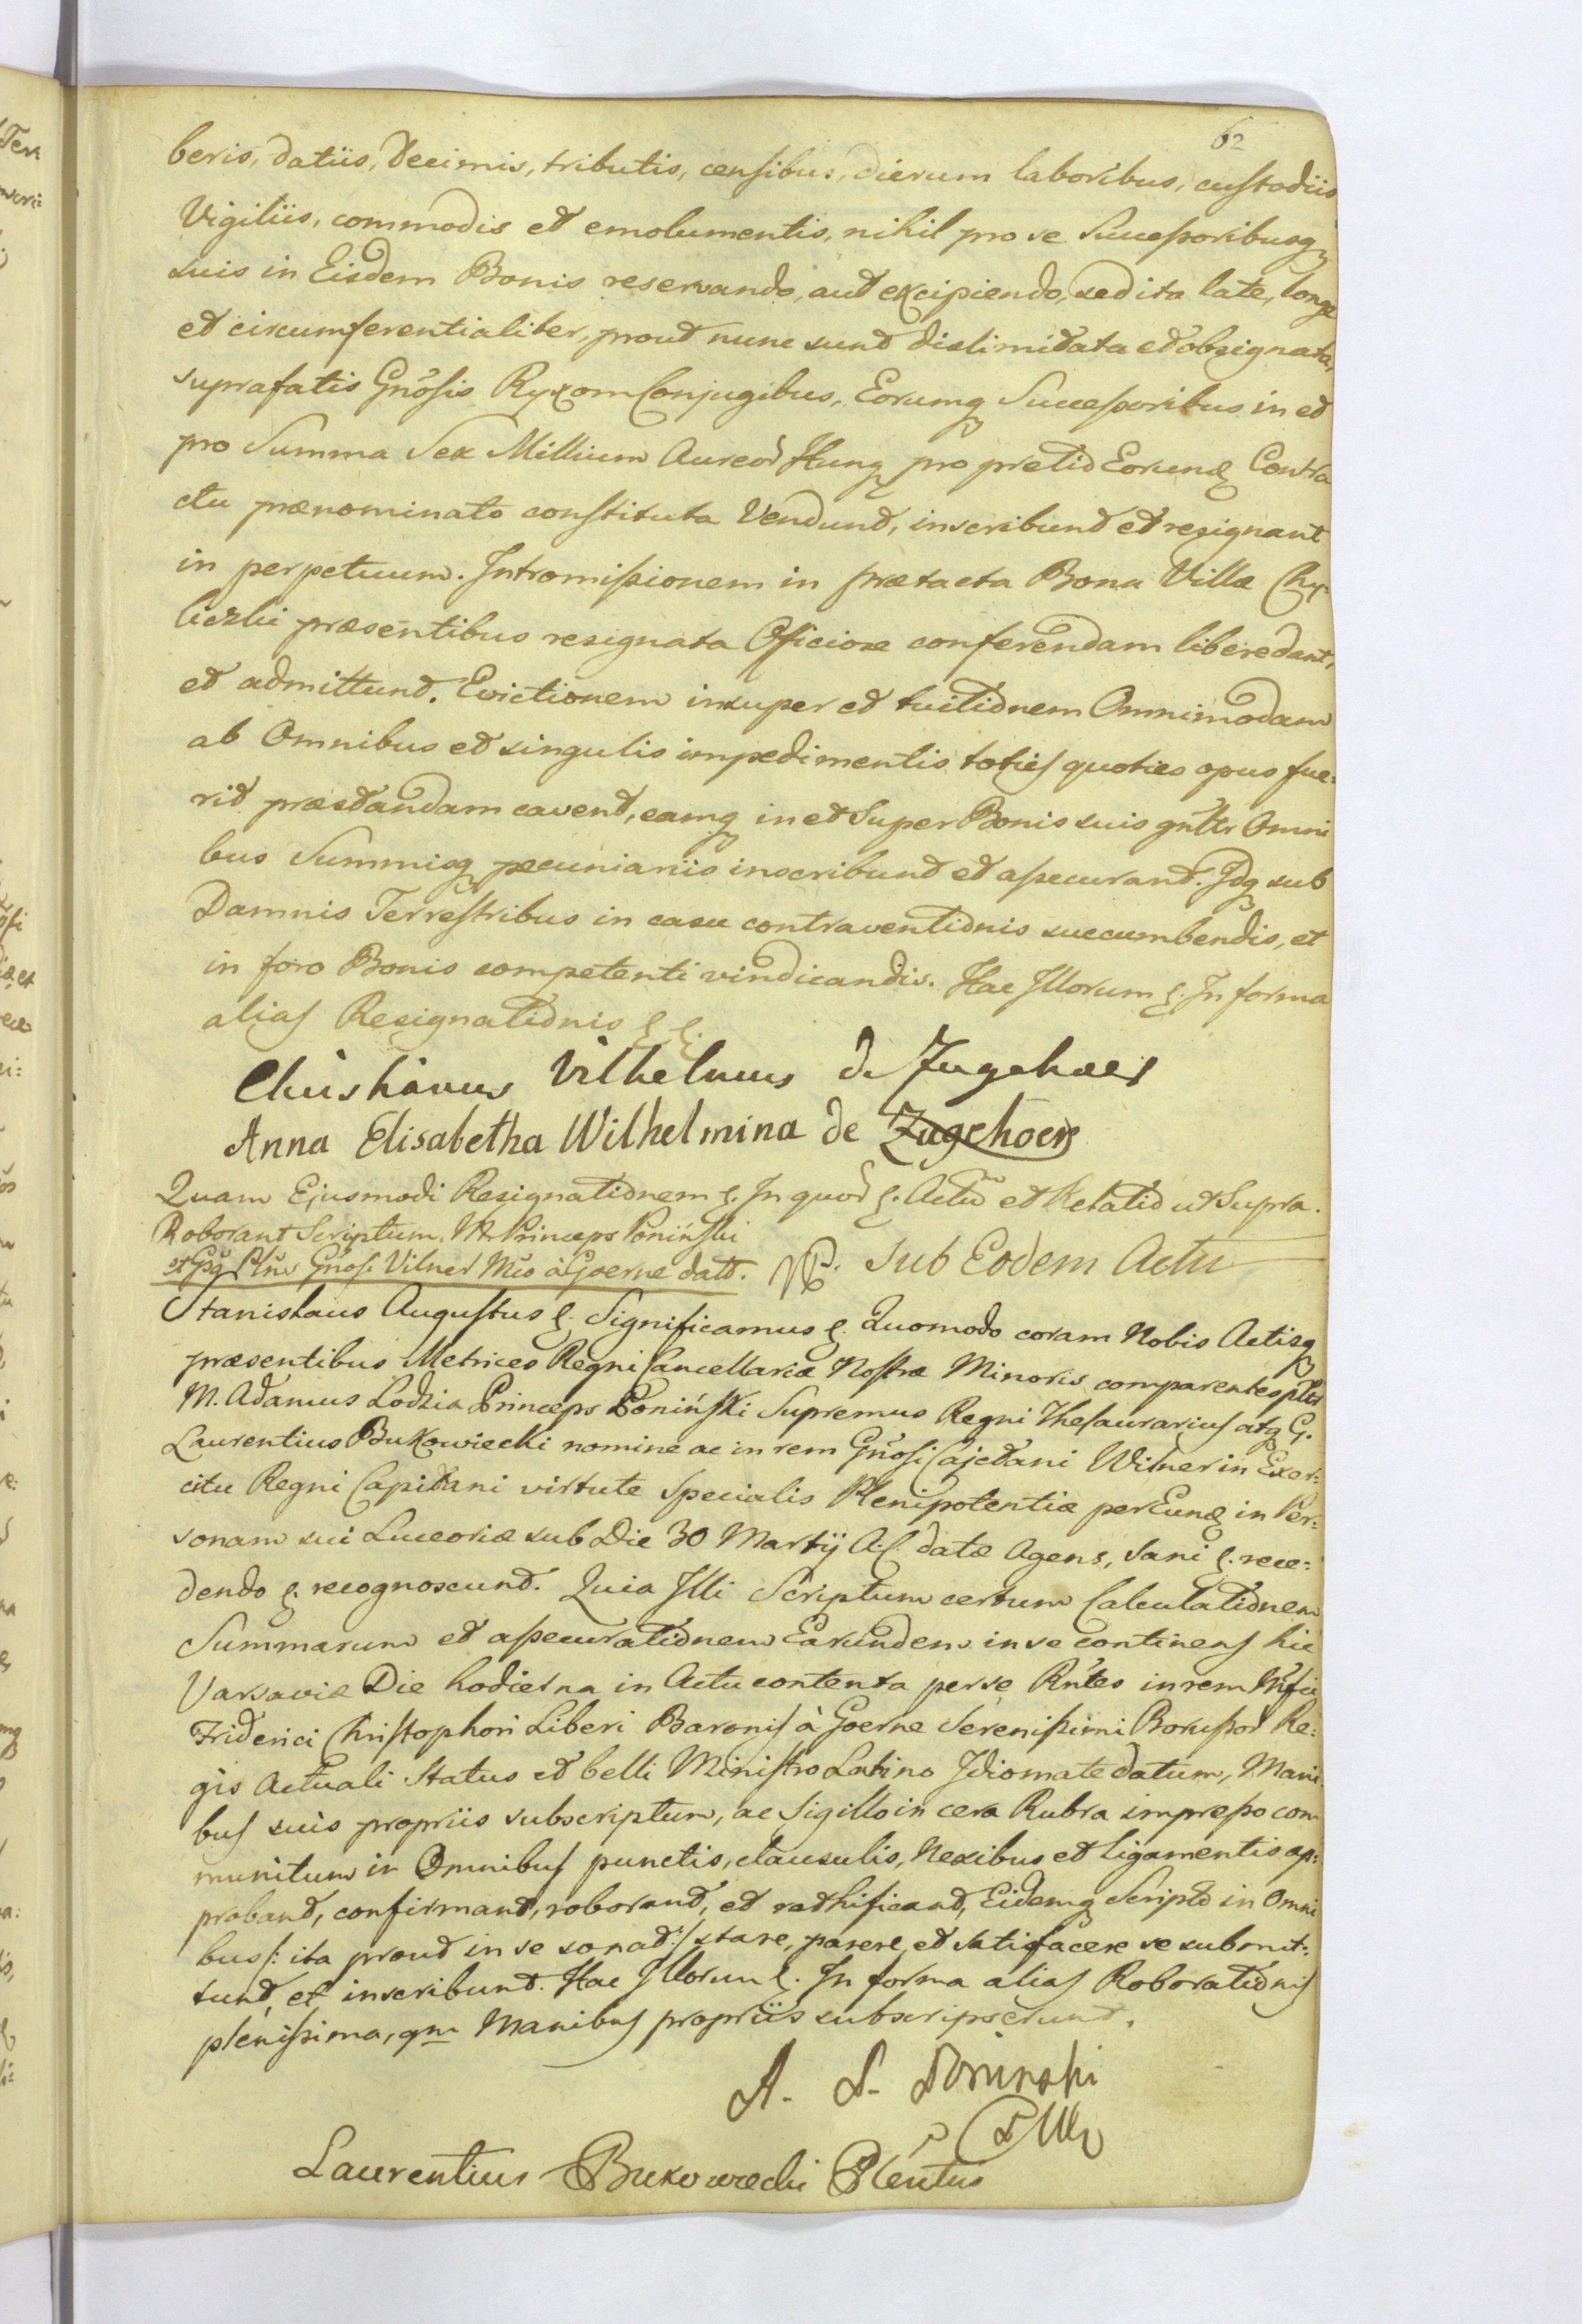 62
beris, datiis, Decimis, tributis, censibus, dierum laboribus, custodiis
Vigiliis, commodis et emolumentis, nihil pro se Successoribusq
suis in Eisdem Bonis reservando, aut excipiendo, sed ita late, longe
et circumferentialiter, prout nunc sunt dislimitata et obsignata,
suprafatis Gnosis Ryxom Conjugibus, Eorumq Successoribus in et
pro Summa Sex Millium Aureor Hung pro pretio Eorund Contra
ctu prænominato constituta Vendunt, inscribunt et resignant
in perpetuum. Intromissionem in prætacta Bona Villæ Chy-
liczki præsentibus resignata Officiose conferendam libere dant,
et admittunt. Evictionem insuper et tuitionem Omnimodam
ab Omnibus et singulis impedimentis toties quoties opus fue:
rit præstandam cavent, eamq in et Super Bonis suis gnltr Omni
bus Summisq pecuniariis inscribunt et assecurant. Idq sub
Damnis Terrestribus in casu contraventionis succumbendis, et
in foro Bonis competenti vindicandis. Hac Illorum &. In forma
alias Resignationis &. &.
Christianus Vilhelmus de Zugehoer
Anna Elisabetha Wilhelmina de Zugehoer
Quam Ejusmodi Resignationem &. In quor &. Actu et Relatio ut Supra.
Roborant Scriptum. M. Princeps Poniński
et Gsq Plńs Gnosi Vilner Mco à Goerne datt.
Sub Eodem Actu
Stanislaus Augustus &. Significamus &. Quomodo coram Nobis Actisq
præsentibus Metrices Regni Cancellariæ Nostræ Minoris comparentes pltr
M. Adamus Lodzia Princeps Poniński Supremus Regni Thesaurarius atq G.
Laurentius Bukowiecki nomine ac in rem Gnosi Cajetani Wilner in Exer:
citu Regni Capitani virtute specialis Plenipotentiæ per Eund in Per:
sonam sui Luceoriæ sub Die 30 Martij A. C. datæ Agens, sani &. rece:
dendo &. recognoscunt. Quia Illi Scriptum certum Calculationem
Summarum et assecurationem Earundem in se continens hic
Varsaviæ Die hodierna in Actu contenta per se Rntes in rem Mfci
Friderici Christophori Liberi Baronis à Goerne Serenissimi Borussor Re:
gis Actuali Status et belli Ministro Latino Idiomate datum, Mani
bus suis propriis subscriptum, ac Sigillo in cera Rubra impresso com
munitum in Omnibus punctis, clausulis, Nexibus et Ligamentis ap:
probant, confirmant, roborant, et rathificant, Eidemq Scripto in Omni
bus /: ita prout in se sonat :/ stare, parere, et satisfacere se submit:
tunt, et inscribunt. Hac Illorum &. In forma alias Roborationis
plenissima, qm Manibus propriis subscripserunt.
A. L. Poninski
Laurentius Bukowiecki Plentus